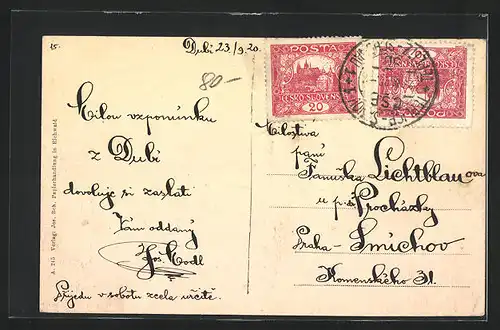 15.
Dubí 23/9 20.
80-
Milou vzpomínku
z Dubí
dovoluje si zaslati
Vám oddaný
Jos. Hodl
Přijedu v sobotu zcela určitě.
A. 215 Verlag: Jos. Beh. Papierhandlung in Eichwald
POSTA
ČESKO-SLOVENSKÁ
20
Milostivá
paní
Fanuška Lichtblau ova
u p. Procházky
Praha-Smíchov
Komenského 31.